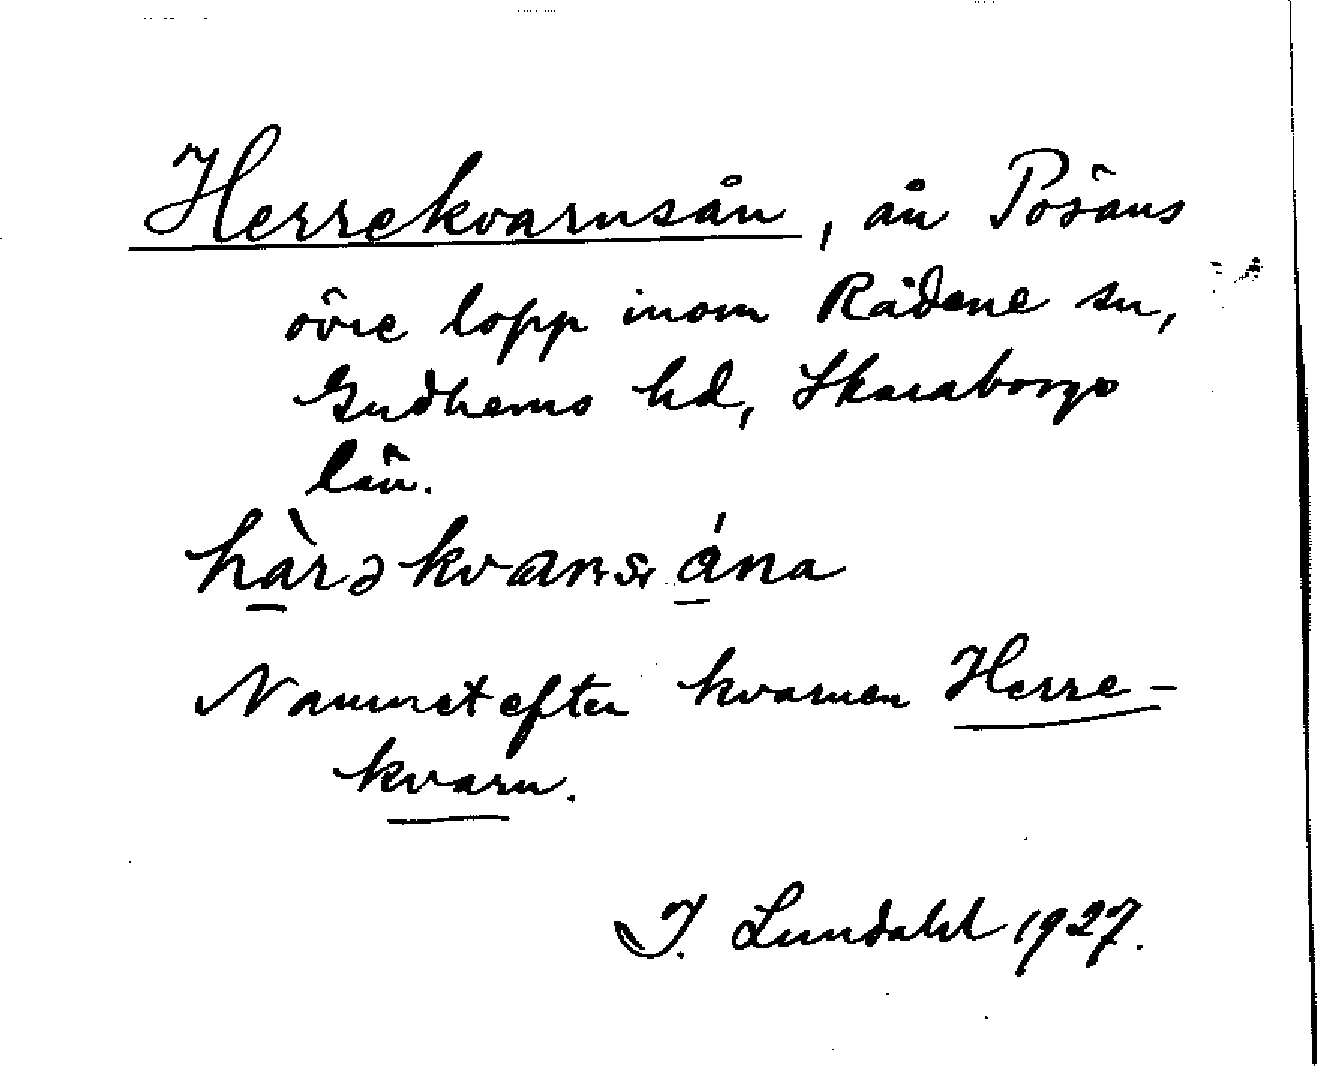 Herrekvarnsån, ån Pösans
övre lopp inom Rådene sn,
Gudhems hd, Skaraborgs
län.
hàrəkvanṣ ána
Namnet efter kvarnen Herre-
kvarn.
I. Lundahl 1927.